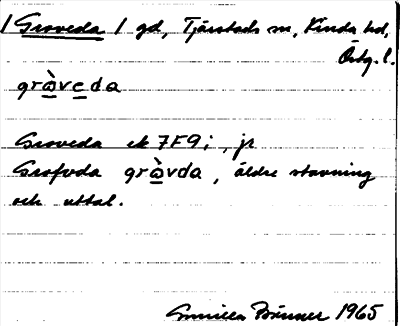 / Groveda / gd, Tjärstads sn, Kinda hd,
Östg. l.
gròveda
Groveda ek 7F9i, jr
Grofvda gròvda, äldre stavning
och uttal.
Gunilla Brånner 1965